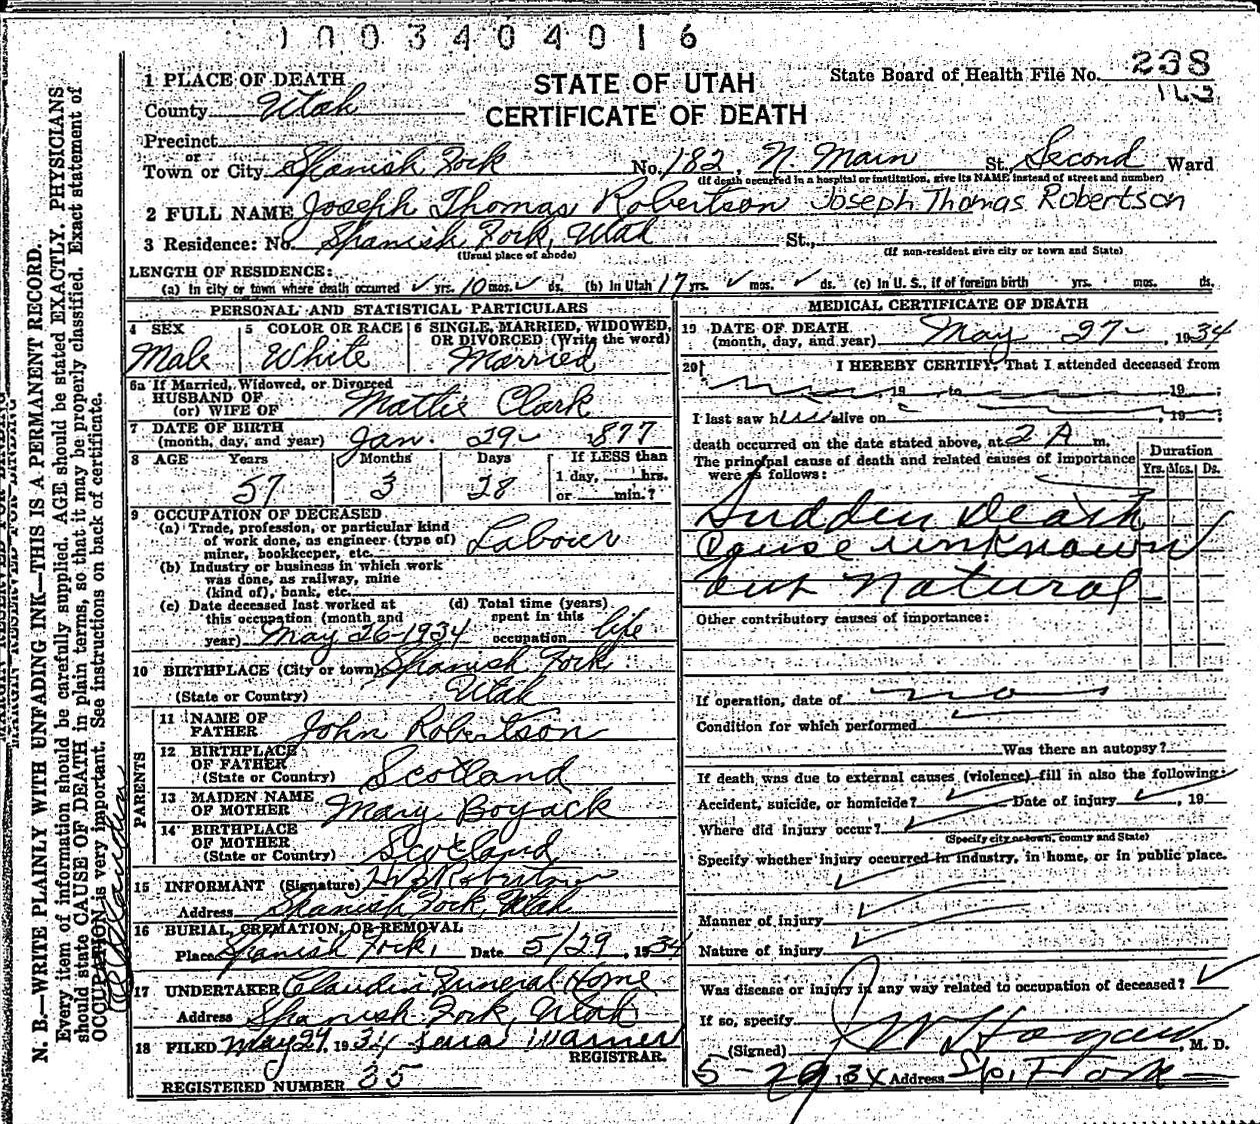 1003404016
STATE OF UTAH
CERTIFICATE OF DEATH
State Board of Health File No. 238
1 PLACE OF DEATH
County Utah
Precinct
or
Town or City Spanish Fork No. 182, N. Main St. Second Ward
(If death occurred in a hospital or institution, give its NAME instead of street and number)
2 FULL NAME Joseph Thomas Robertson Joseph Thomas Robertson
3 Residence: No. Spanish Fork, Utah St.,
(Usual place of abode) (If non-resident give city or town and State)
LENGTH OF RESIDENCE:
(a) In city or town where death occurred ✓ yrs. 10 mos. ✓ ds. (b) In Utah 17 yrs. ✓ mos. ✓ ds. (c) In U. S., if of foreign birth yrs. mos. ds.
PERSONAL AND STATISTICAL PARTICULARS
4 SEX
Male
5 COLOR OR RACE
White
6 SINGLE, MARRIED, WIDOWED, OR DIVORCED (Write the word)
Married
6a If Married, Widowed, or Divorced
HUSBAND OF
(or) WIFE OF Mattie Clark
7 DATE OF BIRTH
(month, day, and year) Jan. 29- 877
8 AGE Years Months Days If LESS than
57 3 28 1 day, hrs.
or min.?
9 OCCUPATION OF DECEASED
(a) Trade, profession, or particular kind
of work done, as engineer (type of)
miner, bookkeeper, etc. Labour
(b) Industry or business in which work
was done, as railway, mine
(kind of), bank, etc.
(c) Date deceased last worked at
this occupation (month and
year) May 26-1934
(d) Total time (years)
spent in this
occupation life
10 BIRTHPLACE (City or town) Spanish Fork
(State or Country) Utah
PARENTS
11 NAME OF
FATHER John Robertson
12 BIRTHPLACE
OF FATHER
(State or Country) Scotland
13 MAIDEN NAME
OF MOTHER Mary Boyack
14 BIRTHPLACE
OF MOTHER
(State or Country) Scotland
15 INFORMANT (Signature) Robertson
Address Spanish Fork, Utah
16 BURIAL, CREMATION, OR REMOVAL
Place Spanish Fork. Date 5/29, 1934
17 UNDERTAKER Claudin Funeral Home
Address Spanish Fork, Utah
18 FILED May 29, 1934 Sara Warner
REGISTRAR.
REGISTERED NUMBER 35
MEDICAL CERTIFICATE OF DEATH
19 DATE OF DEATH
(month, day, and year) May 27-, 1934
20 I HEREBY CERTIFY, That I attended deceased from
, 19 to , 19 ;
I last saw h alive on , 19 ;
death occurred on the date stated above, at 2 A m.
The principal cause of death and related causes of importance
were as follows:
Duration
Yrs. Mos. Ds.
Sudden Death
Cause unknown
but Natural
Other contributory causes of importance:
If operation, date of no
Condition for which performed
Was there an autopsy?
If death was due to external causes (violence) fill in also the following:
Accident, suicide, or homicide? ✓ Date of injury ✓, 19
Where did injury occur? ✓
(Specify city or town, county and State)
Specify whether injury occurred in industry, in home, or in public place.
✓
Manner of injury ✓
Nature of injury ✓
Was disease or injury in any way related to occupation of deceased? ✓
If so, specify
(Signed) J W Hagan, M. D.
5-29 1934 Address Sp. Fork
N. B.—WRITE PLAINLY WITH UNFADING INK—THIS IS A PERMANENT RECORD.
Every item of information should be carefully supplied. AGE should be stated EXACTLY. PHYSICIANS
should state CAUSE OF DEATH in plain terms, so that it may be properly classified. Exact statement of
OCCUPATION is very important. See instructions on back of certificate.
MARGIN RESERVED FOR BINDING